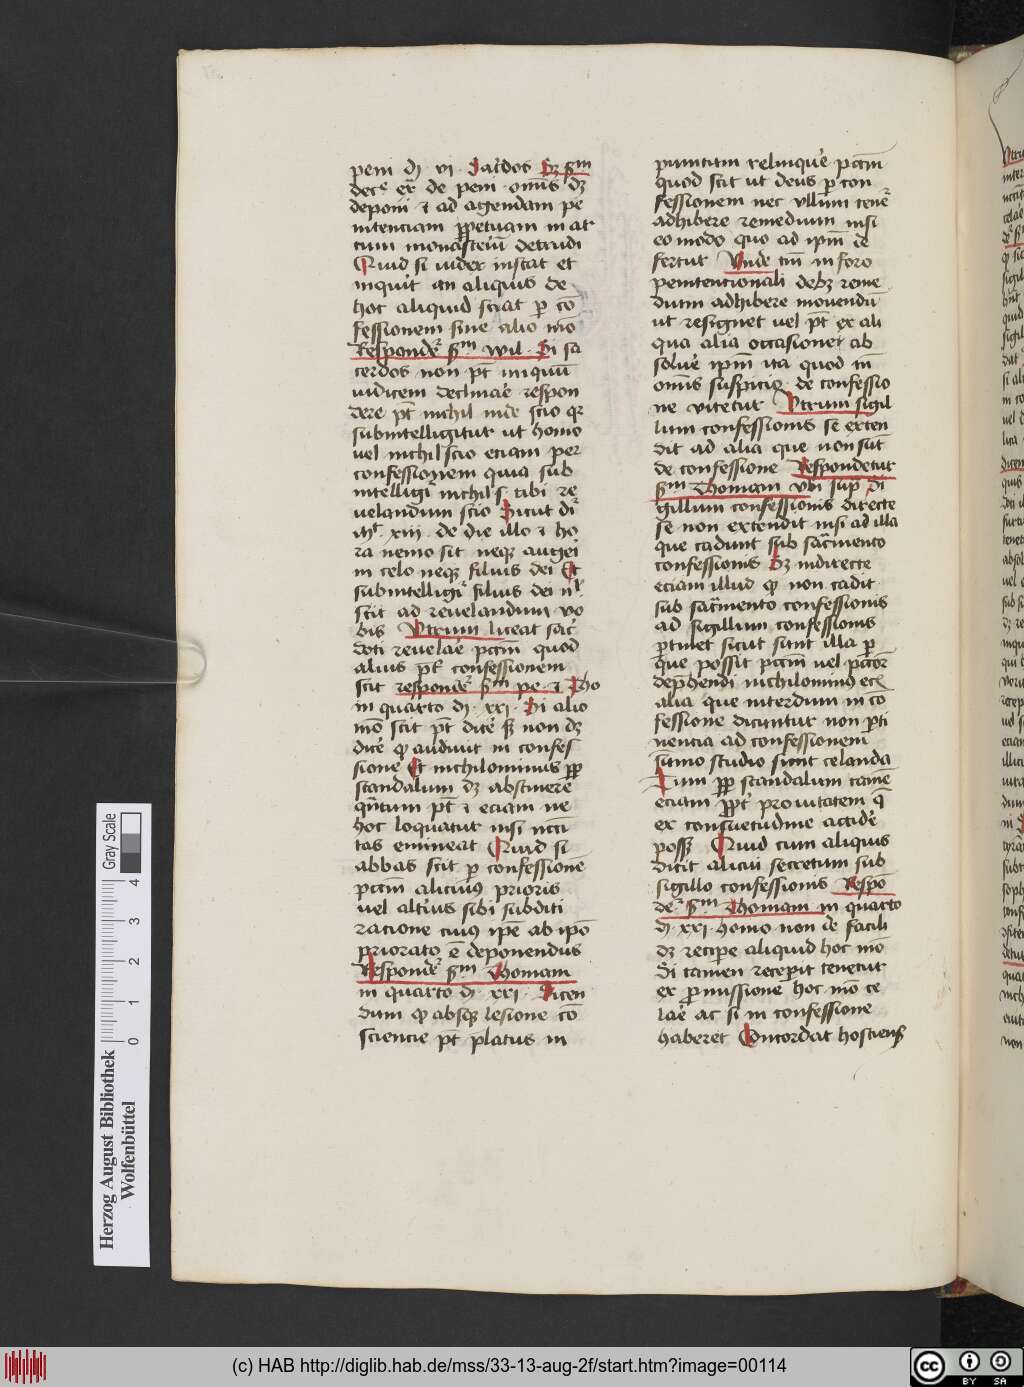 peni di vi Sac̄dos Sz s̄m
dec̄ ex̄ de peni om̄s dz
deponi ⁊ ad agendam pe
nitenciam ꝑpetuam in ar
tum monasteriū detrudi
Quid si iudex instat et
inquirit an aliquis de
hoc aliquid sciat ꝑ cō
fessionem sine alio mō
Respondet̄ s̄m wil Si sa
cerdos non pt̄ iniquū
iudicem declinar̄e respon
dere pt̄ nichil inde scio qr
subintelligitur ut homo
vel nichil scio eciam per
confessionem quia sub
intelligit̄ nichil s tibi re
uelandum scio Sicut dr̄
mt̄ xiii de die illo ⁊ ho
ra nemo scit neqz angeli
in celo neqz filius dei Et
subintelligit̄ filius dei nl̄
scit ad reuelandum vo
bis Vtrum liceat sac̄
doti reuelar̄e pcc̄m quod
alius pt̄ confessionem
scit respondet̄ s̄m pe ⁊ Tho
in quarto di xxi Si alio
mō scit pt̄ dicēr̄ sz non dz
dicēr̄ ꝙ audiuit in confes
sione Et nichilominus ꝓp
scandalum dz abstinere
qn̄tum pt̄ ⁊ eciam ne
hoc loquatur nisi nccī
tas emineat Quid si
abbas scit ꝑ confessionē
pccm alicuius prioris
vel alterius sibi subditi
racione cuius ip̄e ab ip̄o
priorato ē deponendus
Respondet̄ s̄m Thomam
in quarto di xxi Dicen
dum ꝙ absqz lesione cō
sciencie pt̄ platus in
punitum relinquēr̄ pccm
quod scit ut deus ꝑ con
fessionem nec vllum tenēt̄
adhibere remedium nisi
eo modo quo ad ip̄m de
fertur Vnde tn̄ in foro
penitencionali debz reme
dium adhibere mouendū
ut resignet vel pt̄ ex ali
qua alia occasione ab
soluer̄e ip̄m ita quod tn̄
om̄is suspicio de confessio
ne vitetur Vtrum sigil
lum confessionis se exten
dit ad alia que non sūt
de confessione Respondetur
s̄m Thomam vbi sup̄ Si
gillum confessionis directe
se non extendit nisi ad illa
que cadunt sub sac̄mento
confessionis Sz indirecte
eciam illud ꝙ non cadit
sub sac̄mento confessionis
ad sigillum confessionis
ꝑtinet sicut sunt illa ꝑ
que possit pccm vel pccōr
dep̄hendi nichilomin⁹ ecē
alia que interdum in cō
fessione dicuntur non ꝑti
nencia ad confessionem
sūmo studio sunt celanda
Tum ꝓp scandalum tamē
eciam ꝓpt̄ pronitatem q̄
ex consuetudine accidēr̄
possz Quid cum aliquis
dicit alicui secretum sub
sigillo confessionis Respō
det̄ s̄m Thomam in quarto
di xxi homo non de facili
dz recipe aliquid hoc mō
Si tamen receperit tenetur
ex ꝑmissione hoc mō ce
lar̄e ac si in confessione
haberet Concordat hostiens̄
Herzog August Bibliothek
Wolfenbüttel
Gray Scale
0 1 2 3 4
(c) HAB http://diglib.hab.de/mss/33-13-aug-2f/start.htm?image=00114
cc BY SA